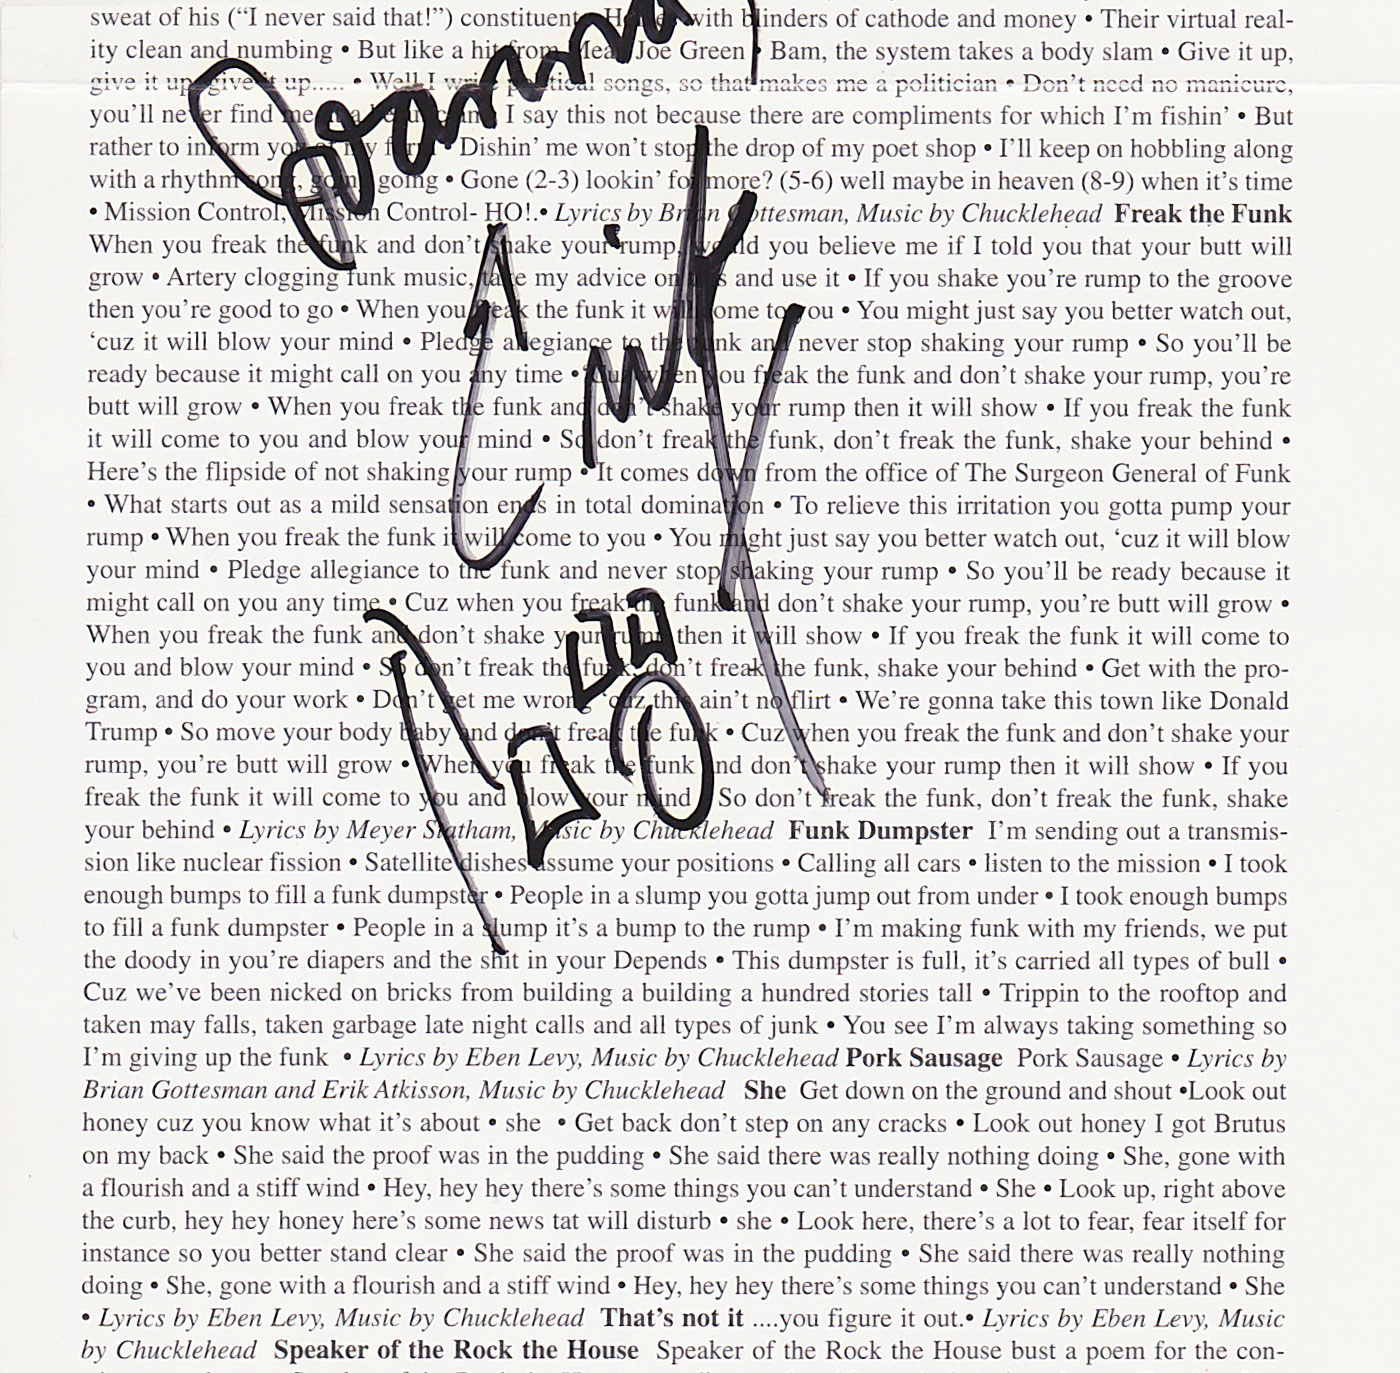 sweat of his (“I never said that!”) constituents with blinders of cathode and money • Their virtual real-
ity clean and numbing • But like a hit from Mean Joe Green • Bam, the system takes a body slam • Give it up,
give it up, give it up..... • Well I write political songs, so that makes me a politician • Don’t need no manicure,
you’ll never find me I say this not because there are compliments for which I’m fishin’ • But
rather to inform you of my form • Dishin’ me won’t stop the drop of my poet shop • I’ll keep on hobbling along
with a rhythm song, going going • Gone (2-3) lookin’ for more? (5-6) well maybe in heaven (8-9) when it’s time
• Mission Control, Mission Control- HO!.• Lyrics by Brian Gottesman, Music by Chucklehead Freak the Funk
When you freak the funk and don’t shake your rump, would you believe me if I told you that your butt will
grow • Artery clogging funk music, take my advice on this and use it • If you shake you’re rump to the groove
then you’re good to go • When you freak the funk it will come to you • You might just say you better watch out,
‘cuz it will blow your mind • Pledge allegiance to the funk and never stop shaking your rump • So you’ll be
ready because it might call on you any time • ‘Cuz when you freak the funk and don’t shake your rump, you’re
butt will grow • When you freak the funk and don’t shake your rump then it will show • If you freak the funk
it will come to you and blow your mind • So don’t freak the funk, don’t freak the funk, shake your behind •
Here’s the flipside of not shaking your rump • It comes down from the office of The Surgeon General of Funk
• What starts out as a mild sensation ends in total domination • To relieve this irritation you gotta pump your
rump • When you freak the funk it will come to you • You might just say you better watch out, ‘cuz it will blow
your mind • Pledge allegiance to the funk and never stop shaking your rump • So you’ll be ready because it
might call on you any time • Cuz when you freak the funk and don’t shake your rump, you’re butt will grow •
When you freak the funk and don’t shake your rump then it will show • If you freak the funk it will come to
you and blow your mind • So don’t freak the funk, don’t freak the funk, shake your behind • Get with the pro-
gram, and do your work • Don’t get me wrong ‘cuz this ain’t no flirt • We’re gonna take this town like Donald
Trump • So move your body baby and don’t freak the funk • Cuz when you freak the funk and don’t shake your
rump, you’re butt will grow • When you freak the funk and don’t shake your rump then it will show • If you
freak the funk it will come to you and blow your mind • So don’t freak the funk, don’t freak the funk, shake
your behind • Lyrics by Meyer Statham, Music by Chucklehead Funk Dumpster I’m sending out a transmis-
sion like nuclear fission • Satellite dishes assume your positions • Calling all cars • listen to the mission • I took
enough bumps to fill a funk dumpster • People in a slump you gotta jump out from under • I took enough bumps
to fill a funk dumpster • People in a slump it’s a bump to the rump • I’m making funk with my friends, we put
the doody in you’re diapers and the shit in your Depends • This dumpster is full, it’s carried all types of bull •
Cuz we’ve been nicked on bricks from building a building a hundred stories tall • Trippin to the rooftop and
taken may falls, taken garbage late night calls and all types of junk • You see I’m always taking something so
I’m giving up the funk • Lyrics by Eben Levy, Music by Chucklehead Pork Sausage Pork Sausage • Lyrics by
Brian Gottesman and Erik Atkisson, Music by Chucklehead She Get down on the ground and shout •Look out
honey cuz you know what it’s about • she • Get back don’t step on any cracks • Look out honey I got Brutus
on my back • She said the proof was in the pudding • She said there was really nothing doing • She, gone with
a flourish and a stiff wind • Hey, hey hey there’s some things you can’t understand • She • Look up, right above
the curb, hey hey honey here’s some news tat will disturb • she • Look here, there’s a lot to fear, fear itself for
instance so you better stand clear • She said the proof was in the pudding • She said there was really nothing
doing • She, gone with a flourish and a stiff wind • Hey, hey hey there’s some things you can’t understand • She
• Lyrics by Eben Levy, Music by Chucklehead That’s not it ....you figure it out.• Lyrics by Eben Levy, Music
by Chucklehead Speaker of the Rock the House Speaker of the Rock the House bust a poem for the con-